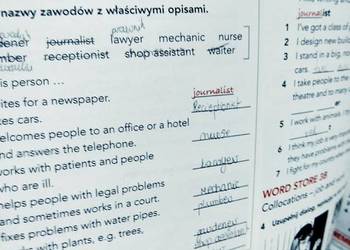 nazwy zawodów z właściwymi opisami.
prawnik
journalist lawyer mechanic nurse
receptionist shop assistant waiter
is person ...
ites for a newspaper. journalist
es cars. Receptionist
elcomes people to an office or a hotel
nd answers the telephone. nurse
works with patients and people
who are ill. lawyer
helps people with legal problems
and sometimes works in a court. Mechanic
fixes problems with water pipes. plumber
with plants, e.g. trees, gardener
shop assistant
journalist
1 I've got a class of
2 I design new build
3 I stand in a big, no
cars.
4 I take people to the
theatre and to many
5 I work with animals. I
6 I think my job is very
they do n
7 I fight for my country wh
WORD STORE 3B
Collocations – job and
4